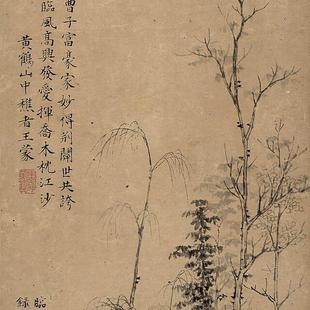 曹子富豪家妙得荊關世共誇
臨風高興發愛揮喬木枕江沙
黃鶴山中樵者王蒙
臨
錄